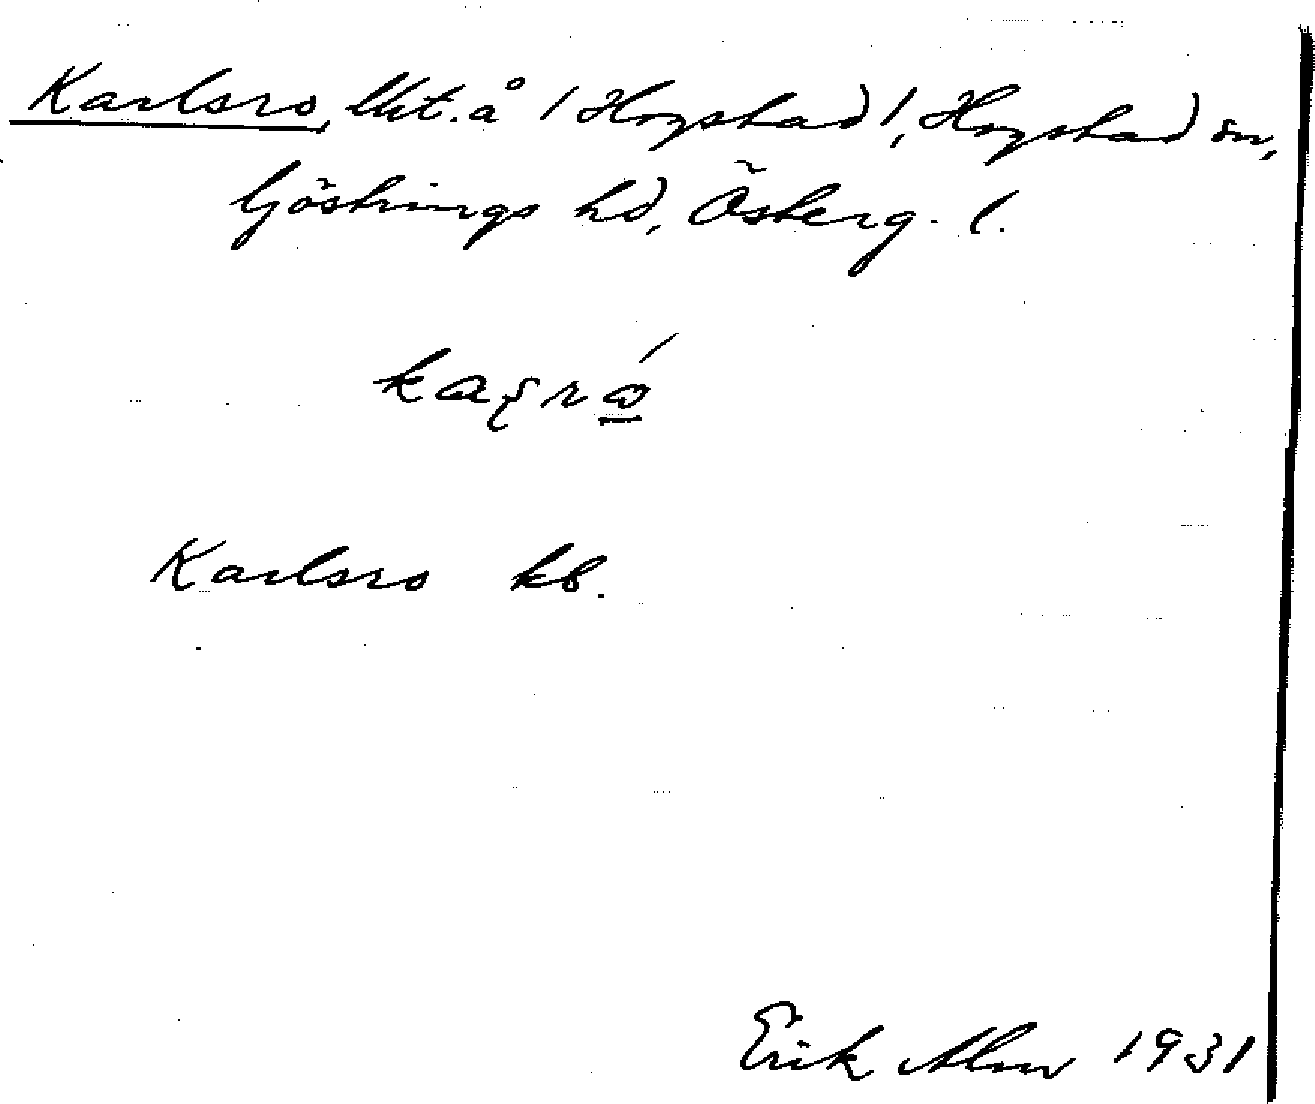 Karlsro, lht. å /Hogstad/, Hogstad sn,
Göstrings hd, Österg. l.
Karlsro kb.
Erik Alm 1931